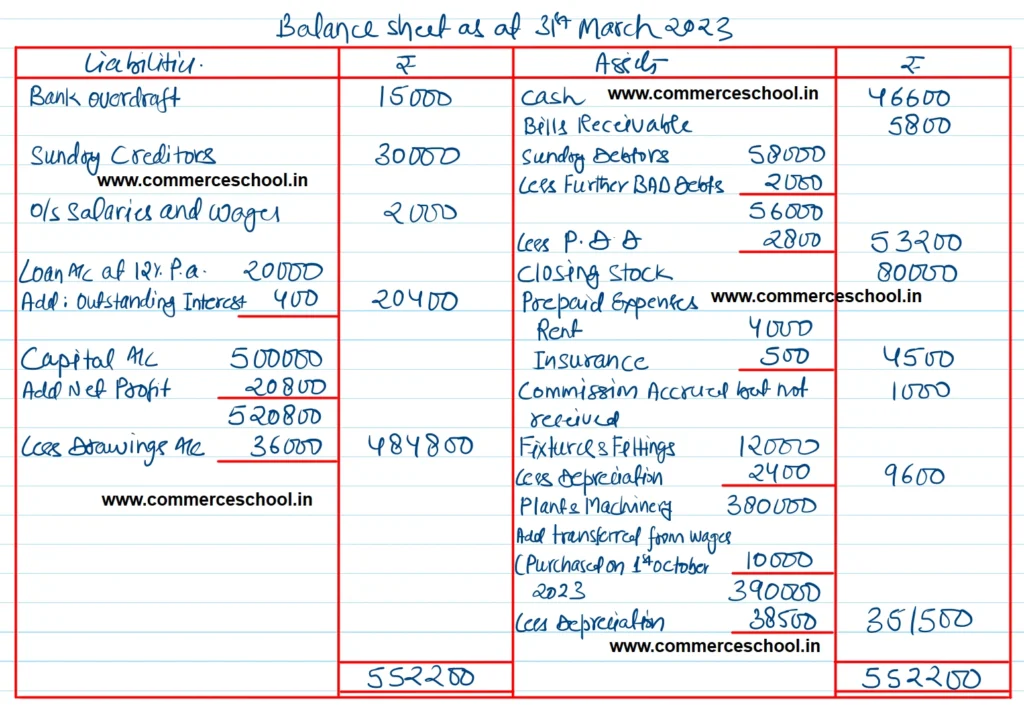 Balance sheet as at 31st March 2023
Liabilities. ₹ Assets ₹
Bank overdraft 15000 Cash www.commerceschool.in 46600
Bills Receivable 5800
Sundry Creditors 30000 Sundry Debtors 58000
www.commerceschool.in Less Further BAD Debts 2000
O/s Salaries and Wages 2000 56000
Less P.D.D 2800 53200
Loan A/c at 12% P.a. 20000 Closing Stock 80000
Add: Outstanding Interest 400 20400 Prepaid Expenses www.commerceschool.in
Rent 4000
Capital A/c 500000 Insurance 500 4500
Add Net Profit 20800 Commission Accrued but not 1000
520800 received
Less Drawings A/c 36000 484800 Fixture & Fittings 12000
Less Depreciation 2400 9600
www.commerceschool.in Plant & Machinery 380000
Add transferred from wages
(Purchased on 1st October 10000
2023 390000
Less Depreciation 38500 351500
www.commerceschool.in
552200 552200